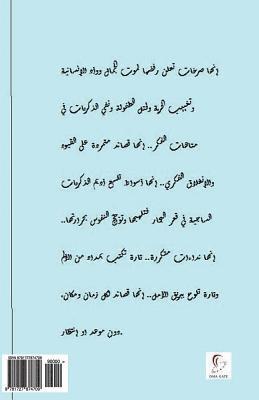 إنها صرخات تعلن رفضها لموت الجمال ووأد الإنسانية
وتغييب الحرية وقتل الطفولة ونفي الذكريات في
متاهات الفكر.. إنها قصائد متمردة على القيود
والإنغلاق الفكري.. إنها أسواط تلسع أديم الذكريات
الساجية في قعر البحار فتلهبها وتؤجج النفوس بحرارتها..
إنها نداءات متكررة.. تارة تكتب بمداد من الألم
وتارة تلوح ببريق الأمل.. إنها قصائد لكل زمان ومكان،
دون موعد أو إنتظار..
ISBN 9781727874709
90000
9 781727 874709